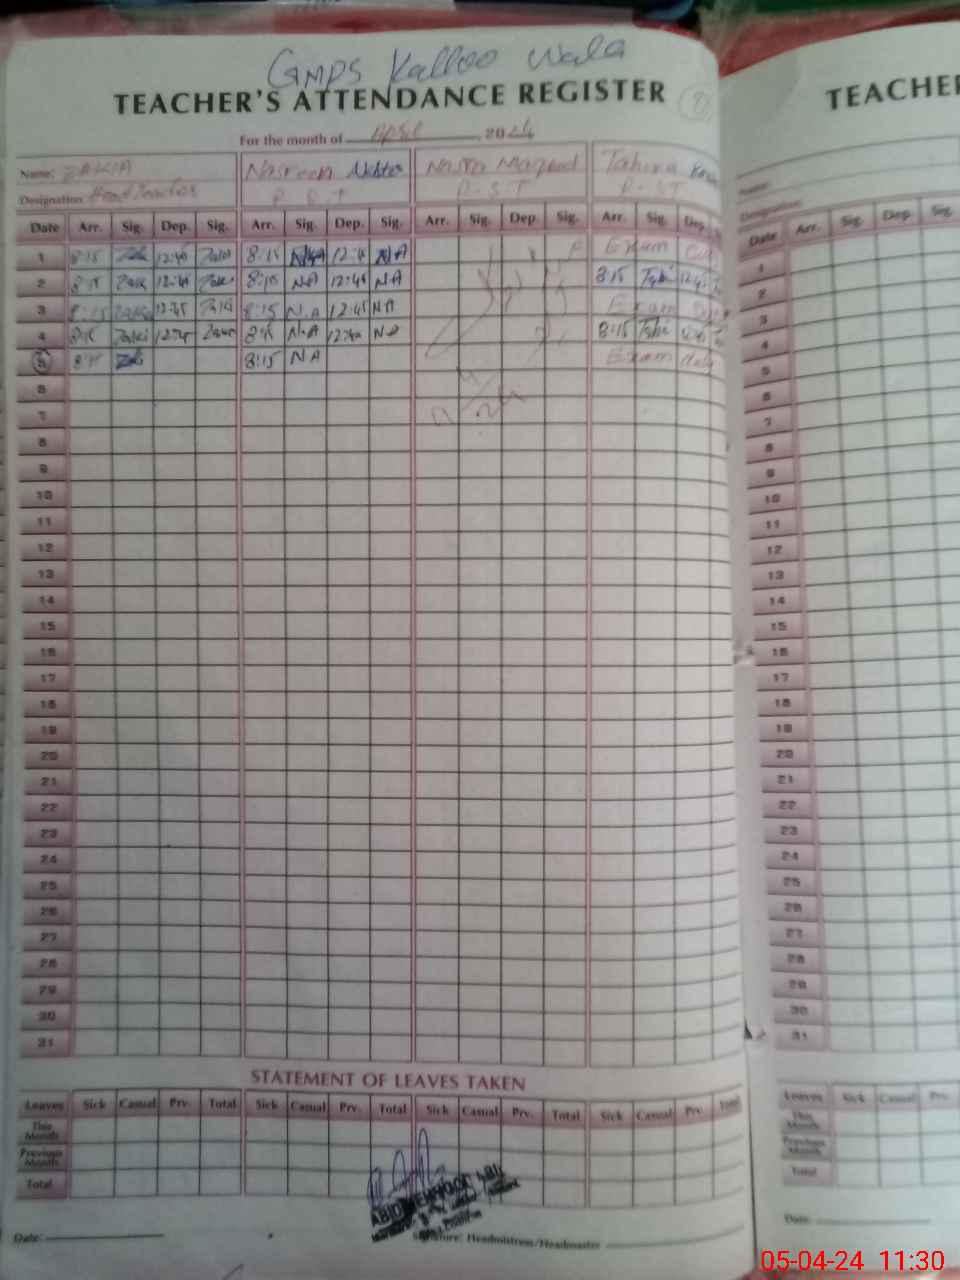 GMPS Kalloo Wala
TEACHER'S ATTENDANCE REGISTER
For the month of April, 2024
Name: ZAKIA Nasreen Akhter Nasra Maqsood Tahira
Designation: Head Teacher P.S.T P.S.T P.S.T
Date Arr. Sig. Dep. Sig. Arr. Sig. Dep. Sig. Arr. Sig. Dep. Sig. Arr. Sig. Dep.
1 8:15 12:45 8:15 NA 12:45 NA Exam
2 8:15 Zaki 12:45 Zaki 8:15 NA 12:45 NA 8:15 12:45
3 8:15 Zaki 12:45 Zaki 8:15 N.A 12:45 NA Exam
4 8:15 Zaki 12:45 8:15 N.A 12:45 NA 8:15 12:45
5 8:15 8:15 NA Exam duty
6
7
8
9
10
11
12
13
14
15
16
17
18
19
20
21
22
23
24
25
26
27
28
29
30
31
STATEMENT OF LEAVES TAKEN
Leaves Sick Casual Prv. Total Sick Casual Prv. Total Sick Casual Prv. Total Sick Casual Prv. Total
This Month
Previous Month
Total
Date: Signature: Headmistress/Headmaster
TEACHER
Name:
Designation:
Date Arr. Sig. Dep. Sig.
1
2
3
4
5
6
7
8
9
10
11
12
13
14
15
16
17
18
19
20
21
22
23
24
25
26
27
28
29
30
31
Leaves Sick Casual Prv.
This Month
Previous Month
Total
Date:
05-04-24 11:30